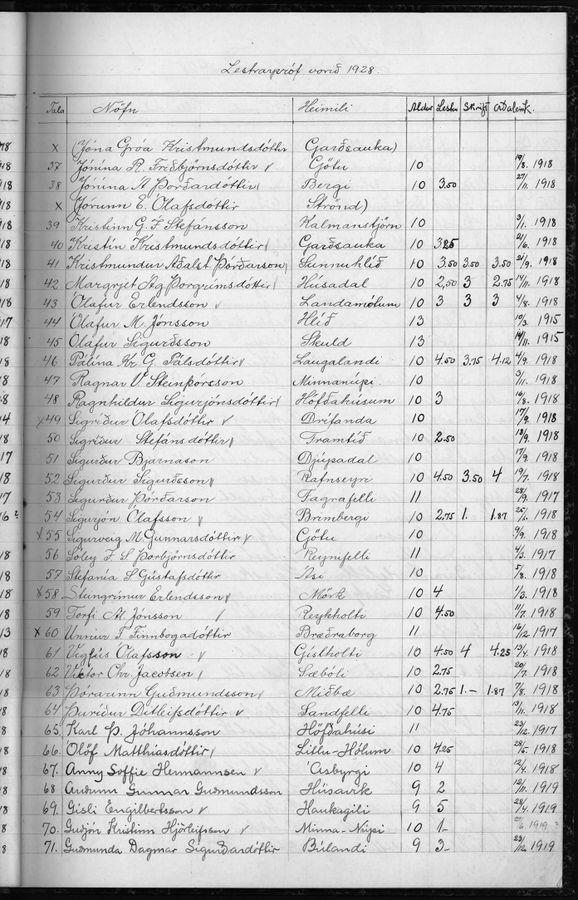 Lestrarpróf vorið 1928.
Tala Nöfn Heimili Aldur Lestur Skrift Aðaleink.
x (Jóna Gróa Kristmundsdóttir Garðsauka)
37 Jónína R. Friðbjörnsdóttir v Götu 10 19/8. 1918
38 Jónína A Þórðardóttir Bergi 10 3.50 27/11. 1918
x (Jórunn E. Ólafsdóttir Strönd)
39 Kristinn G. F. Stefánsson Kalmanstjörn 10 3/1. 1918
40 Kristín Kristmundsdóttir Garðsauka 10 3.25 21/6. 1918
41 Kristmundur Aðalst. Þórðarson Sunnuhlíð 10 3.50 3.50 3.50 21/9. 1918
42 Margrjet Þorgrímsdóttir Húsadal 10 2,50 3 2.75 1918
43 Ólafur Erlendsson v Landamótum 10 3 3 3 4/8. 1918
44 Ólafur M. Jónsson Hlíð 13 10/3. 1915
45 Ólafur Sigurðsson Skuld 13 14/11. 1915
46 Pálína Kr. G. Pálsdóttir v Laugalandi 10 4.50 3.75 4.12 4/9. 1918
47 Ragnar V Steinþórsson Minnanúpi 10 3/11. 1918
48 Ragnhildur Sigurjónsdóttir Höfðahúsum 10 3 16/8. 1918
x49 Sigríður Ólafsdóttir v Drífanda 10 17/9. 1918
50 Sigríður Stefánsdóttir Framtíð 10 2.50 13/9. 1918
51 Sigurður Bjarnason Djúpadal 10 17/9. 1918
52 Sigurður Sigurðsson Rafnseyri 10 4.50 3.50 4 19/7. 1918
53 Sigurður Þórðarson Fagrafelli 11 28/9. 1917
54 Sigurjón Ólafsson v Brimbergi 10 2.75 1. 1.87 25/1. 1918
x55 Sigurveig M. Gunnarsdóttir v Götu 10 9/9. 1918
56 Sóley F. S Þorbjörnsdóttir Reynifelli 11 1917
57 Stefanía S Gústafsdóttir Ási 10 5/8. 1918
x58 Steingrímur Erlendsson v Mörk 10 4 1/3. 1918
59 Torfi M. Jónsson Reykholti 10 4.50 11/7. 1918
x60 Unnur T Finnbogadóttir Bræðraborg 11 16/12. 1917
61 Vigfús Ólafsson v Gíslholti 10 4.50 4 4.25 1918
62 Viktor Chr. Jacobsen Sæbóli 10 2.75 20/7. 1918
63 Þórarinn Guðmundsson Miðbæ 10 2.75 1.- 1.87 7/8. 1918
64 Þuríður Ditleifsdóttir v Sandfelli 10 4.75 13/11. 1918
65. Karl Þ. Jóhannsson Höfðahúsi 11 23/12. 1917
66. Ólöf Matthíasdóttir Litlu-Hólum 10 4.25 28/5. 1918
67. Anny Soffie Hermannsen v Ásbyrgi 10 4 12/4. 1918
68 Auðunn Gunnar Guðmundsson Húsavík 9 2 12/11. 1919
69. Gísli Engilbertsson v Haukagili 9 5 28/4. 1919
70. Guðjón Kristinn Hjörleifsson v Minna-Núpi 10 1- 1919
71. Guðmunda Dagmar Sigurðardóttir Búlandi 9 3- 23/12. 1919